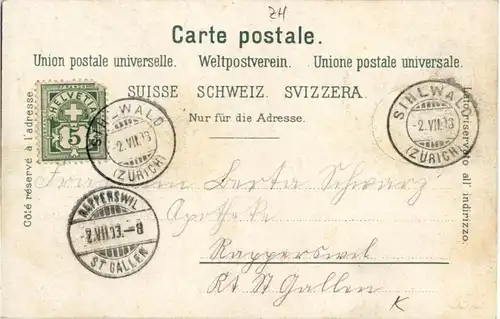 ZH
Carte postale.
Union postale universelle. Weltpostverein. Unione postale universale.
SUISSE SCHWEIZ. SVIZZERA.
Nur für die Adresse.
Côté réservé à l'adresse.
Lato riservato all' indirizzo.
HELVETIA
5
SIHLWALD
-2.VII.03
(ZÜRICH)
SIHLWALD
-2.VII.03
(ZÜRICH)
RAPPERSWIL
2.VII.03.-8
ST GALLEN
Fräulein Berta Schwarz
Apotheke
Rapperswil
Kt. St. Gallen
K